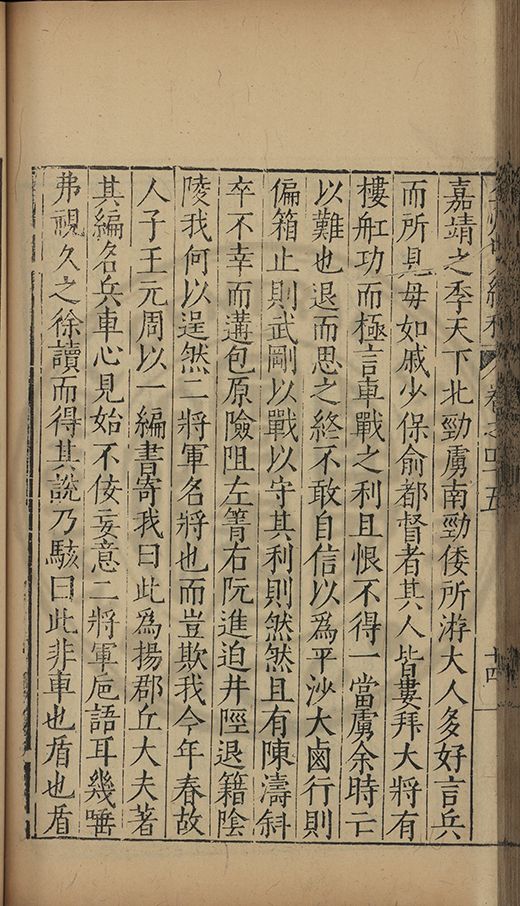 卷之四十五
十四
嘉靖之季天下北勁虜南勁倭所游大人多好言兵
而所見毋如戚少保俞都督者其人皆婁拜大將有
樓舡功而極言車戰之利且恨不得一當虜余時亡
以難也退而思之終不敢自信以爲平沙大鹵行則
偏箱止則武剛以戰以守其利則然然且有陳濤斜
卒不幸而遘包原險阻左箐右阮進迫井陘退籍陰
陵我何以逞然二將軍名將也而豈欺我今年春故
人子王元周以一編書寄我曰此爲揚郡丘大夫著
其編名兵車心見始不佞妄意二將軍巵語耳幾唾
弗視久之徐讀而得其說乃駭曰此非車也盾也盾